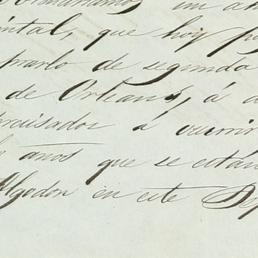 un
ental, que hoy
prarlo de segunda
de Orleans, á
precisados á ocurrir
años que se están
Algodon en este